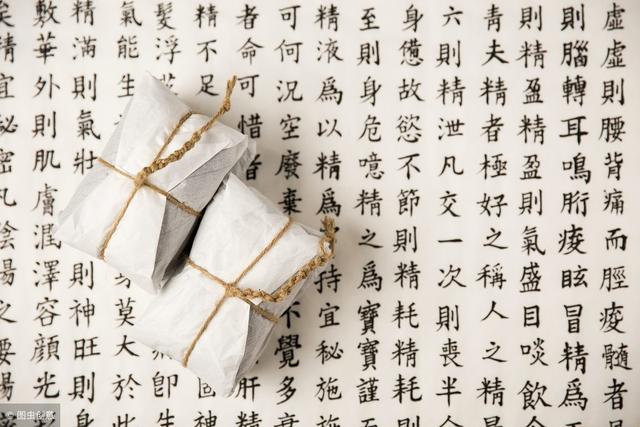 虛虛則腰背痛而脛痠髓者
則腦轉耳鳴胻痠眩冒精為
則精盈精盈則氣盛目啖飲
青夫精者極好之稱人之精
六則精泄凡交一次則喪半
身憊故慾不節則精耗精耗則
至則身危噫精之為寶寶謹
精液為以精為持宜秘施
可何況空廢棄不覺多
者命可惜者肝精
精不足神
髮浮即生
氣能生莫大於此
精滿則氣壯則神旺則身
敷華外則肌膚潤澤容顏光
精宜秘密凡陰陽之腰
©图虫创意